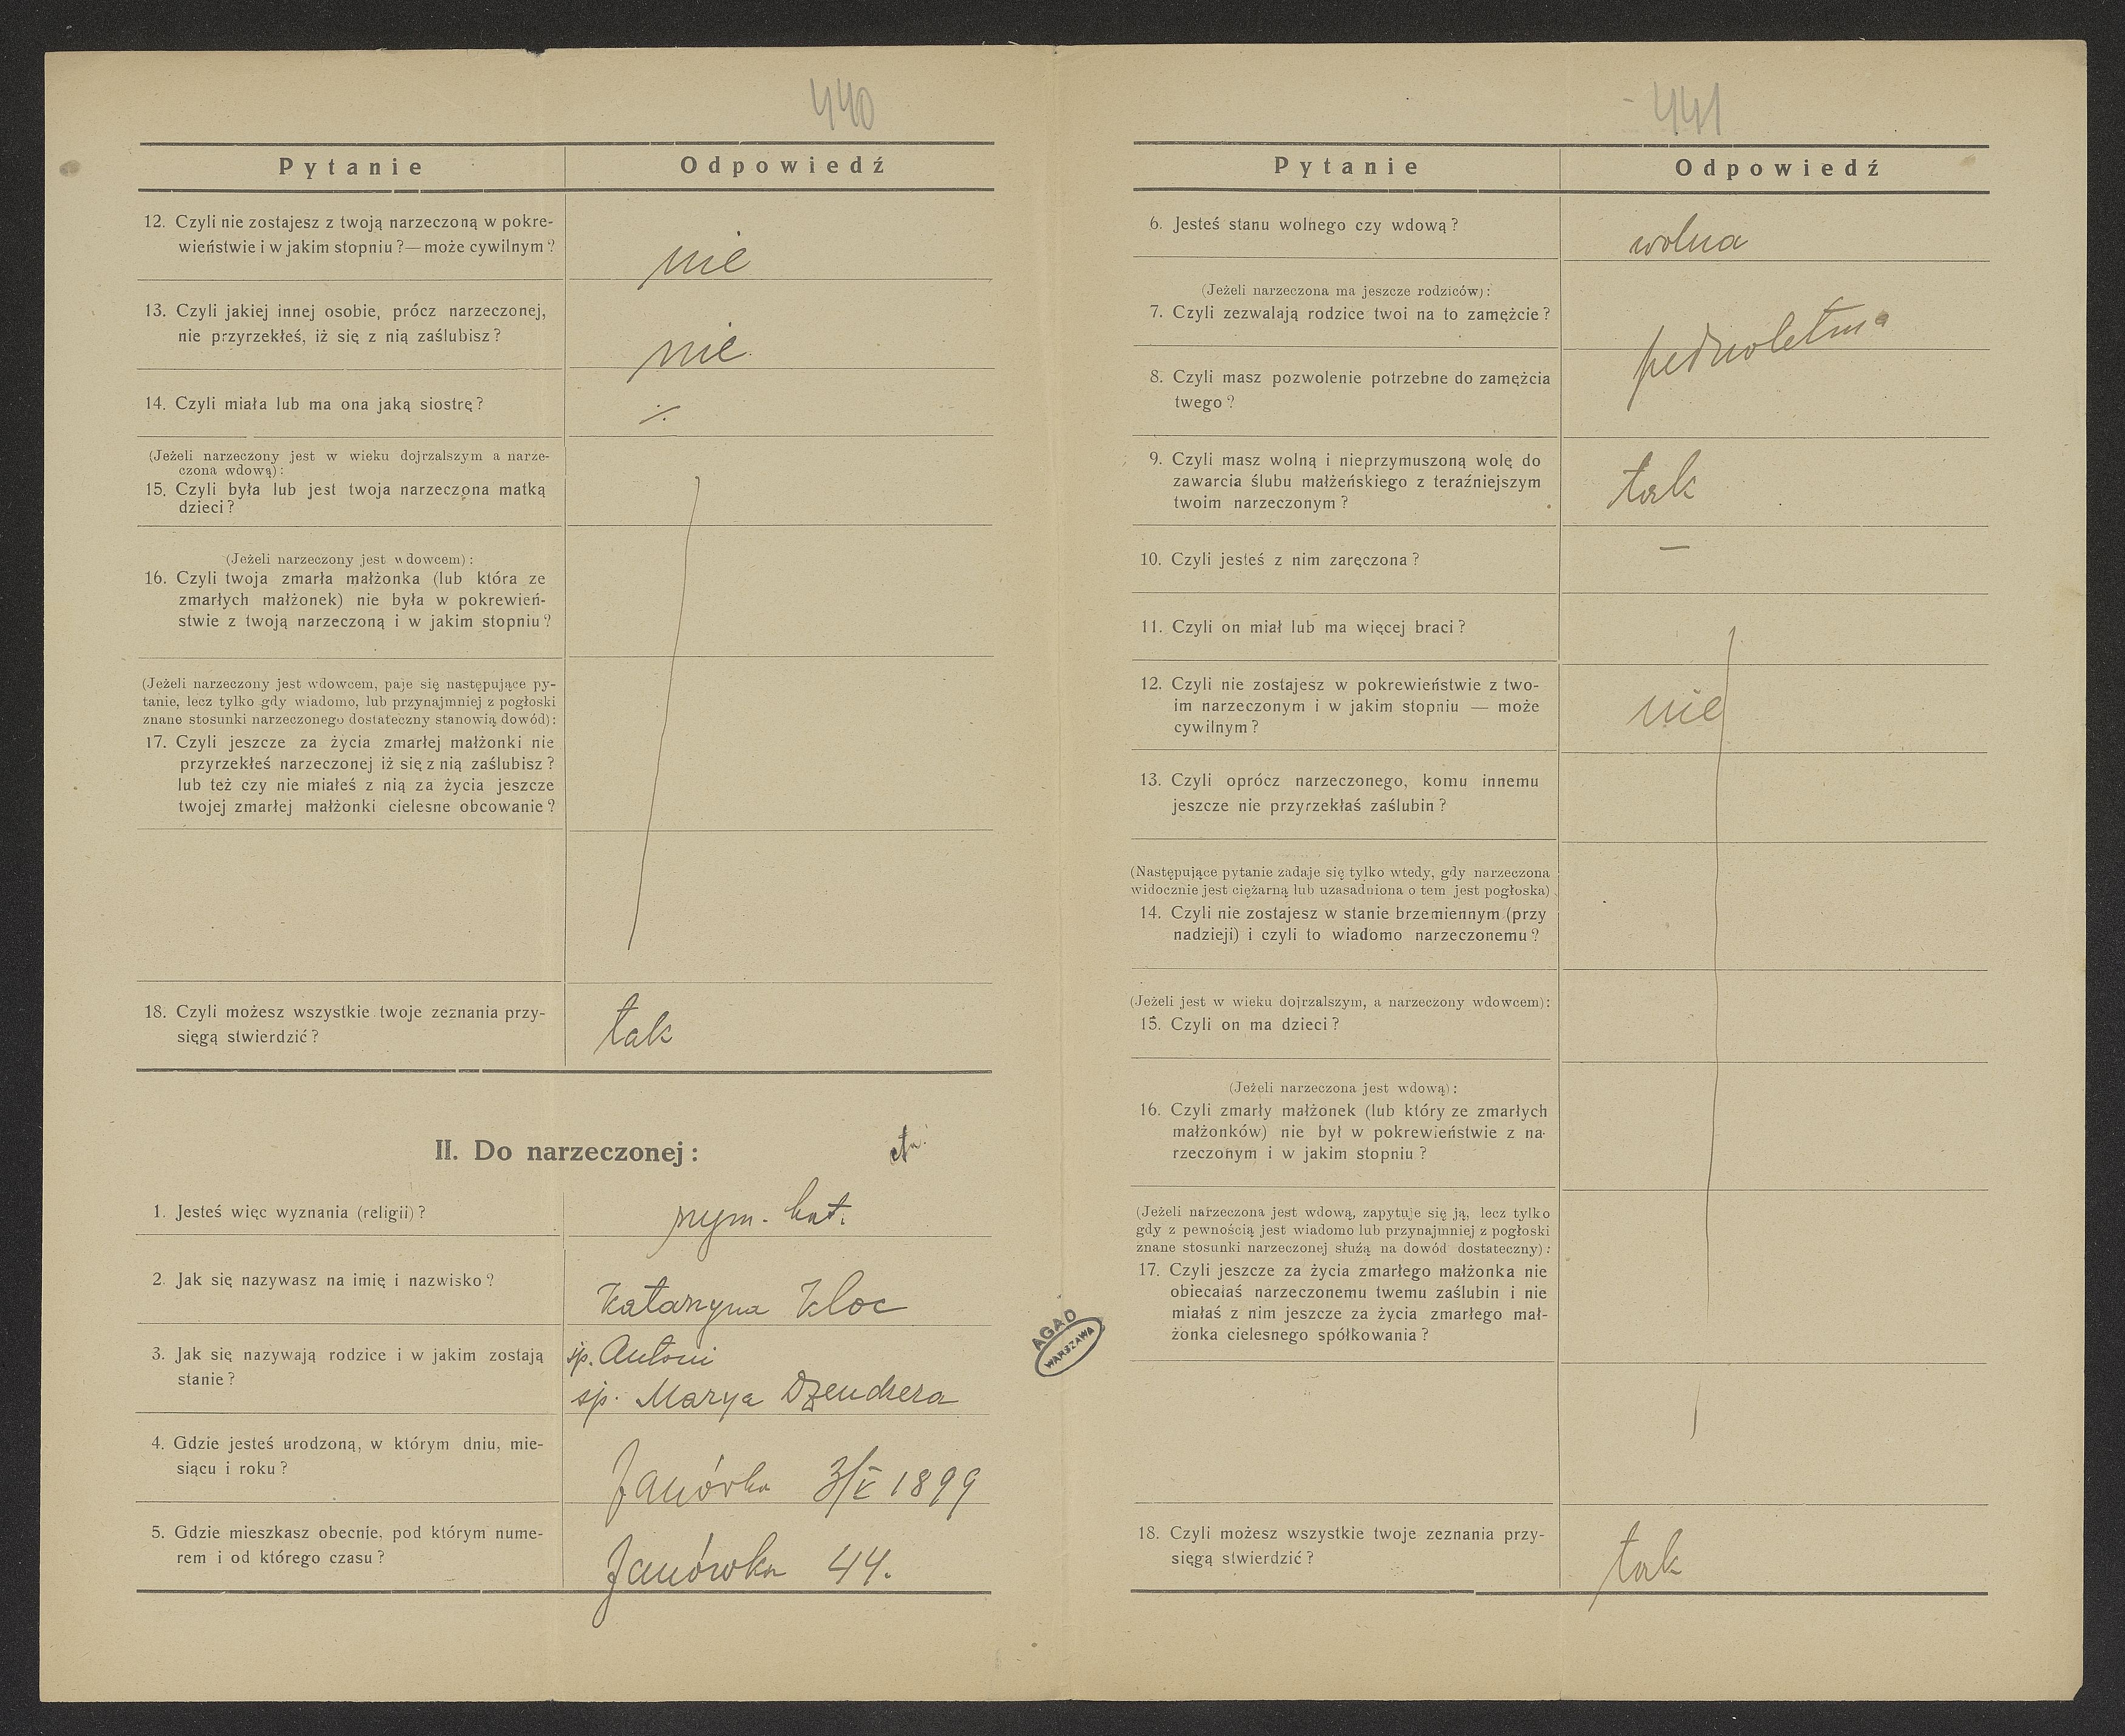 440
Pytanie Odpowiedź
12. Czyli nie zostajesz z twoją narzeczoną w pokre-
wieństwie i w jakim stopniu ?— może cywilnym ?
nie
13. Czyli jakiej innej osobie, prócz narzeczonej,
nie przyrzekłeś, iż się z nią zaślubisz ?
nie
14. Czyli miała lub ma ona jaką siostrę ?
(Jeżeli narzeczony jest w wieku dojrzalszym a narze-
czona wdową) :
15. Czyli była lub jest twoja narzeczona matką
dzieci ?
(Jeżeli narzeczony jest wdowcem) :
16. Czyli twoja zmarła małżonka (lub która ze
zmarłych małżonek) nie była w pokrewień-
stwie z twoją narzeczoną i w jakim stopniu ?
(Jeżeli narzeczony jest wdowcem, paje się następujące py-
tanie, lecz tylko gdy wiadomo, lub przynajmniej z pogłoski
znane stosunki narzeczonego dostateczny stanowią dowód) :
17. Czyli jeszcze za życia zmarłej małżonki nie
przyrzekłeś narzeczonej iż się z nią zaślubisz ?
lub też czy nie miałeś z nią za życia jeszcze
twojej zmarłej małżonki cielesne obcowanie ?
18. Czyli możesz wszystkie twoje zeznania przy-
sięgą stwierdzić ?
tak
II. Do narzeczonej :
1. Jesteś więc wyznania (religii) ?
rzym. kat.
2. Jak się nazywasz na imię i nazwisko ?
Katarzyna Kloc
3. Jak się nazywają rodzice i w jakim zostają
stanie ?
śp. Antoni
śp. Marya Dzendzera
4. Gdzie jesteś urodzoną, w którym dniu, mie-
siącu i roku ?
Janówka 3/V 1899
5. Gdzie mieszkasz obecnie, pod którym nume-
rem i od którego czasu ?
Janówka 44.
AGAD
WARSZAWA
441
Pytanie Odpowiedź
6. Jesteś stanu wolnego czy wdową ?
wolna
(Jeżeli narzeczona ma jeszcze rodziców) :
7. Czyli zezwalają rodzice twoi na to zamężcie ?
pełnoletnia
8. Czyli masz pozwolenie potrzebne do zamężcia
twego ?
9. Czyli masz wolną i nieprzymuszoną wolę do
zawarcia ślubu małżeńskiego z teraźniejszym
twoim narzeczonym ?
tak
10. Czyli jesteś z nim zaręczona ?
—
11. Czyli on miał lub ma więcej braci ?
12. Czyli nie zostajesz w pokrewieństwie z two-
im narzeczonym i w jakim stopniu — może
cywilnym ?
nie
13. Czyli oprócz narzeczonego, komu innemu
jeszcze nie przyrzekłaś zaślubin ?
(Następujące pytanie zadaje się tylko wtedy, gdy narzeczona
widocznie jest ciężarną lub uzasadniona o tem jest pogłoska)
14. Czyli nie zostajesz w stanie brzemiennym (przy
nadzieji) i czyli to wiadomo narzeczonemu ?
(Jeżeli jest w wieku dojrzalszym, a narzeczony wdowcem) :
15. Czyli on ma dzieci ?
(Jeżeli narzeczona jest wdową) :
16. Czyli zmarły małżonek (lub który ze zmarłych
małżonków) nie był w pokrewieństwie z na-
rzeczonym i w jakim stopniu ?
(Jeżeli narzeczona jest wdową, zapytuje się ją, lecz tylko
gdy z pewnością jest wiadomo lub przynajmniej z pogłoski
znane stosunki narzeczonej służą na dowód dostateczny) :
17. Czyli jeszcze za życia zmarłego małżonka nie
obiecałaś narzeczonemu twemu zaślubin i nie
miałaś z nim jeszcze za życia zmarłego mał-
żonka cielesnego spółkowania ?
18. Czyli możesz wszystkie twoje zeznania przy-
sięgą stwierdzić ?
tak